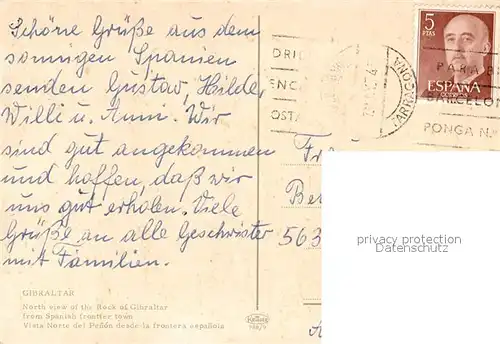 Schöne Grüße aus dem
sonnigen Spanien
senden Gustav, Hilde,
Willi u. Anni. Wir
sind gut angekommen
und hoffen, daß wir
uns gut erholen. Viele
Grüße an alle Geschwister
mit Familien.
GIBRALTAR
North view of the Rock of Gibraltar
from Spanish frontier town
Vista Norte del Peñón desde la frontera española
5
PTAS
ESPAÑA
TARRAGONA
PARA
BARCELO
PONGA N.
DRI
ENC
OST
Fr
Be
563
privacy protection
Datenschutz